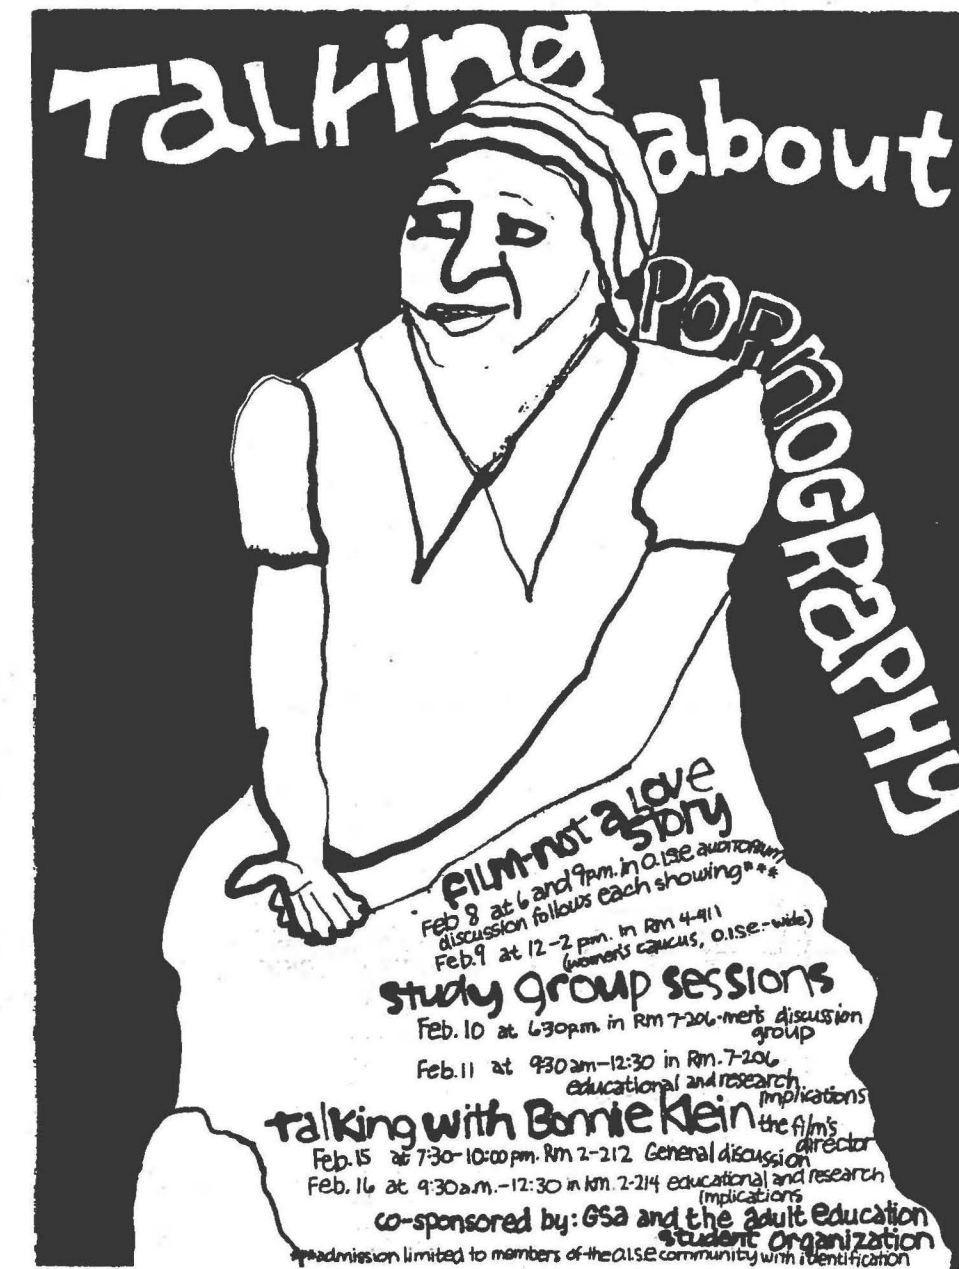 Talking
about
PORNOGRAPHY
FILM-not a Love
Story
Feb 8 at 6 and 9pm. in O.I.S.E auditorium
discussion follows each showing***
Feb.9 at 12-2 pm. in Rm 4-411
(women's caucus, O.I.S.E.-wide)
study group sessions
Feb. 10 at 6:30pm. in Rm 7-206-men's discussion
group
Feb.11 at 9:30am-12:30 in Rm. 7-206
educational and research
implications
Talking with Bonnie Klein the film's
director
Feb. 15 at 7:30-10:00pm. Rm 2-212 General discussion
Feb. 16 at 9:30a.m.-12:30 in Rm. 2-214 educational and research
implications
co-sponsored by: GSA and the adult education
student organization
***admission limited to members of the O.I.S.E community with identification